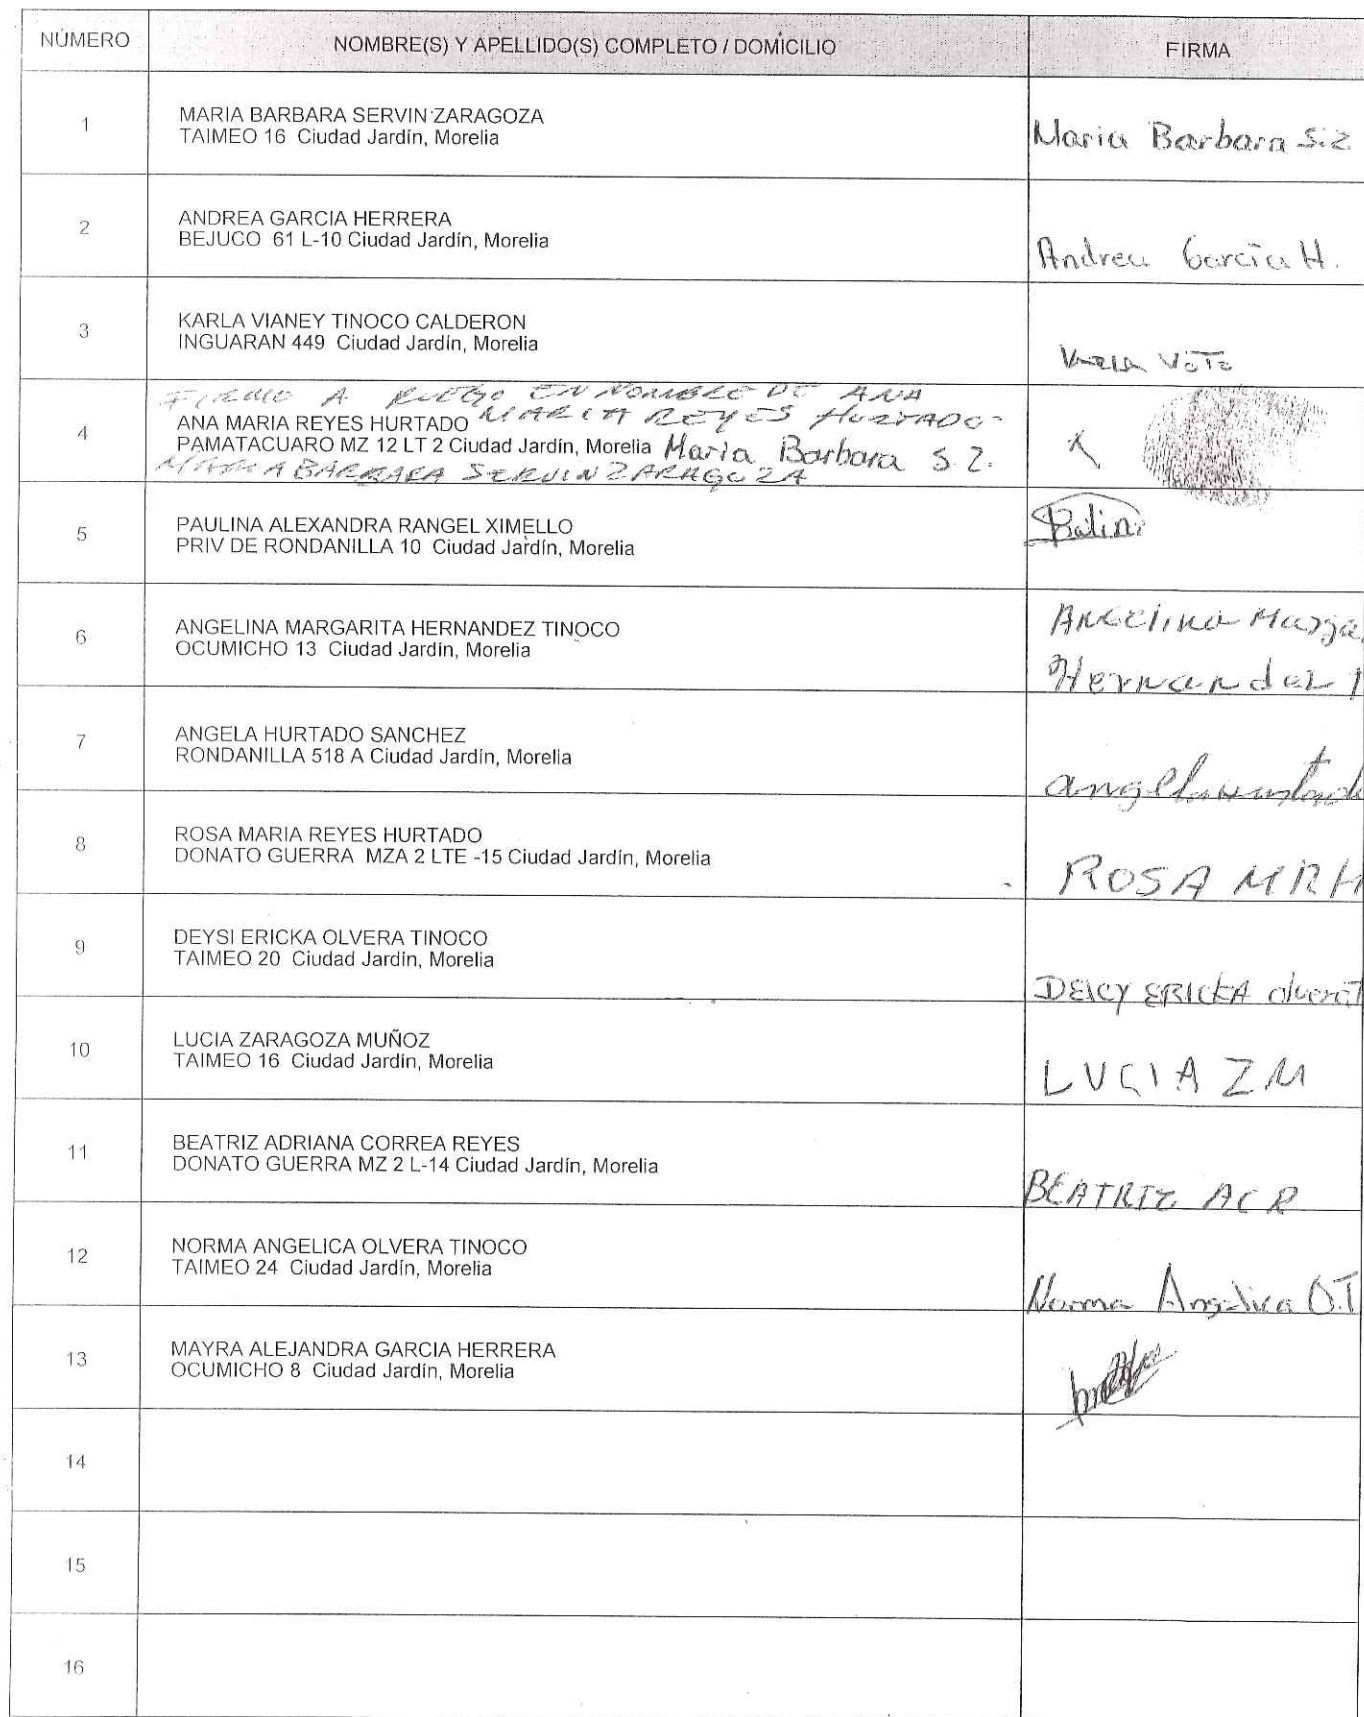 NÚMERO
NOMBRE(S) Y APELLIDO(S) COMPLETO / DOMICILIO
FIRMA
1
MARIA BARBARA SERVIN ZARAGOZA
TAIMEO 16 Ciudad Jardín, Morelia
Maria Barbara S.Z
2
ANDREA GARCIA HERRERA
BEJUCO 61 L-10 Ciudad Jardín, Morelia
Andrea García H.
3
KARLA VIANEY TINOCO CALDERON
INGUARAN 449 Ciudad Jardín, Morelia
4
FIRMO A RUEGO EN NOMBRE DE ANA
MARIA REYES HURTADO
ANA MARIA REYES HURTADO
PAMATACUARO MZ 12 LT 2 Ciudad Jardín, Morelia Maria Barbara S.Z.
MARIA BARBARA SERVIN ZARAGOZA
X
5
PAULINA ALEXANDRA RANGEL XIMELLO
PRIV DE RONDANILLA 10 Ciudad Jardín, Morelia
6
ANGELINA MARGARITA HERNANDEZ TINOCO
OCUMICHO 13 Ciudad Jardín, Morelia
Angelina Marga
Hernandez
7
ANGELA HURTADO SANCHEZ
RONDANILLA 518 A Ciudad Jardín, Morelia
8
ROSA MARIA REYES HURTADO
DONATO GUERRA MZA 2 LTE -15 Ciudad Jardín, Morelia
ROSA MRH
9
DEYSI ERICKA OLVERA TINOCO
TAIMEO 20 Ciudad Jardín, Morelia
DEICY ERICKA olvera T
10
LUCIA ZARAGOZA MUÑOZ
TAIMEO 16 Ciudad Jardín, Morelia
LUCIA ZM
11
BEATRIZ ADRIANA CORREA REYES
DONATO GUERRA MZ 2 L-14 Ciudad Jardín, Morelia
BEATRIZ ACR
12
NORMA ANGELICA OLVERA TINOCO
TAIMEO 24 Ciudad Jardín, Morelia
Norma Angelica O.T
13
MAYRA ALEJANDRA GARCIA HERRERA
OCUMICHO 8 Ciudad Jardín, Morelia
14
15
16